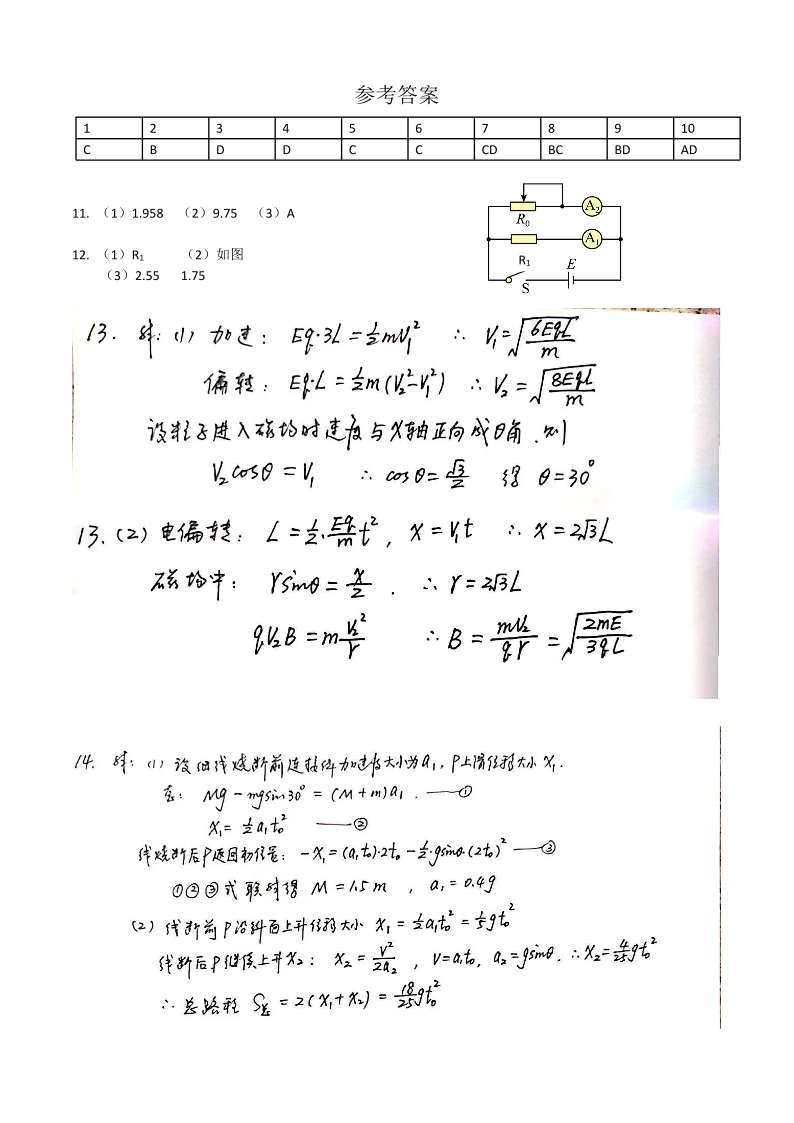 参考答案
1 2 3 4 5 6 7 8 9 10
C B D D C C CD BC BD AD
11. （1）1.958 （2）9.75 （3）A
12. （1）R₁ （2）如图
（3）2.55 1.75
R₀ A₂
A₁
R₁ E
S
13. 解：(1) 加速：Eq·3L=½mV₁² ∴ V₁=√(6EqL/m)
偏转：Eq·L=½m(V₂²-V₁²) ∴ V₂=√(8EqL/m)
设粒子进入磁场时速度与X轴正向成θ角，则
V₂cosθ=V₁ ∴ cosθ=√3/2 得 θ=30°
13.(2) 电偏转：L=½·(Eq/m)t²，X=V₁t ∴ X=2√3L
磁场中：rsinθ=X/2. ∴ r=2√3L
qV₂B=mV₂²/r ∴ B=mV₂/qr=√(2mE/3qL)
14. 解：(1) 设细线烧断前连接体加速度大小为a₁，P上滑位移大小X₁.
Mg-mgsin30°=(M+m)a₁. —①
X₁=½a₁t₀² —②
线烧断后P返回初位置：-X₁=(a₁t₀)·2t₀-½·gsinθ·(2t₀)² —③
①②③式联立解得 M=1.5m，a₁=0.4g
(2) 线断前P沿斜面上升位移大小 X₁=½a₁t₀²=⅕gt₀²
线断后P继续上升X₂：X₂=V²/2a₂，V=a₁t₀，a₂=gsinθ，∴X₂=4/25gt₀²
∴总路程 S总=2(X₁+X₂)=18/25gt₀²